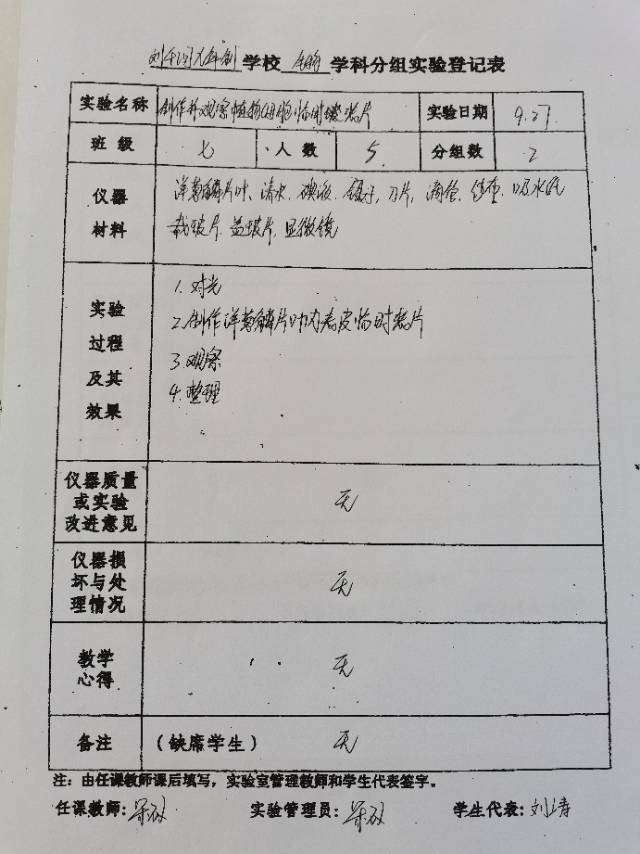 学校 生物 学科分组实验登记表
实验名称 制作并观察植物细胞临时玻片 实验日期 9.27
班级 七 人数 5 分组数 2
仪器材料 洋葱鳞片叶、清水、碘液、镊子、刀片、滴管、吸水纸
载玻片、盖玻片、显微镜
实验过程及其效果
1.对光
2.制作洋葱鳞片叶内表皮临时装片
3.观察
4.整理
仪器质量或实验改进意见 无
仪器损坏与处理情况 无
教学心得 无
备注 (缺席学生) 无
注:由任课教师课后填写,实验室管理教师和学生代表签字。
任课教师: 实验管理员: 学生代表:刘